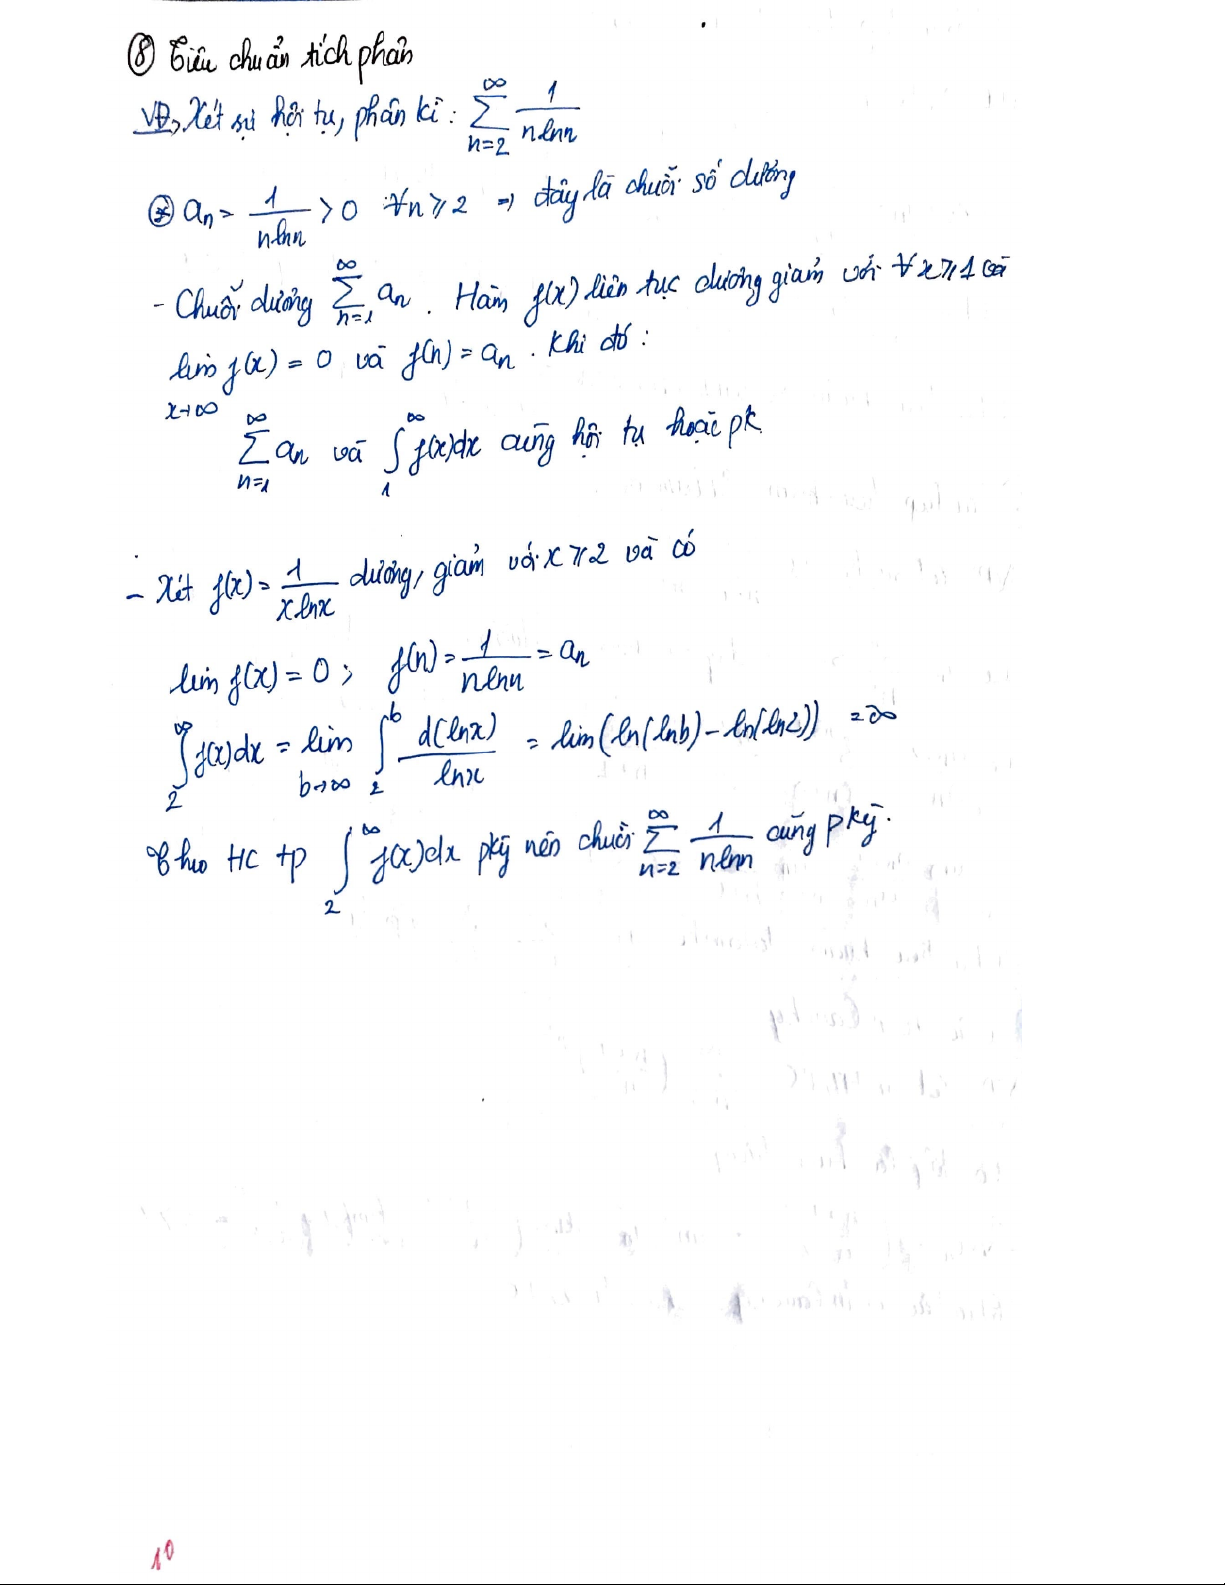 ⑧ Tiêu chuẩn tích phân
VD, Xét sự hội tụ, phân kì: ∑_{n=2}^{∞} 1/(n lnn)
⊛ aₙ = 1/(n lnn) > 0 ∀n ≥ 2 → đây là chuỗi số dương
- Chuỗi dương ∑_{n=1}^{∞} aₙ. Hàm f(x) liên tục dương giảm với ∀x ≥ 1 và
lim_{x→∞} f(x) = 0 và f(n) = aₙ. Khi đó:
∑_{n=1}^{∞} aₙ và ∫_{1}^{∞} f(x)dx cùng hội tụ hoặc pk
- Xét f(x) = 1/(x.lnx) dương, giảm với x ≥ 2 và có
lim f(x) = 0; f(n) = 1/(n lnn) = aₙ
∫_{2}^{∞} f(x)dx = lim_{b→∞} ∫_{2}^{b} d(lnx)/lnx = lim(ln(lnb) - ln(ln2)) = ∞
Theo HC tp ∫_{2}^{∞} f(x)dx pkỳ nên chuỗi ∑_{n=2}^{∞} 1/(n lnn) cũng pkỳ.
10